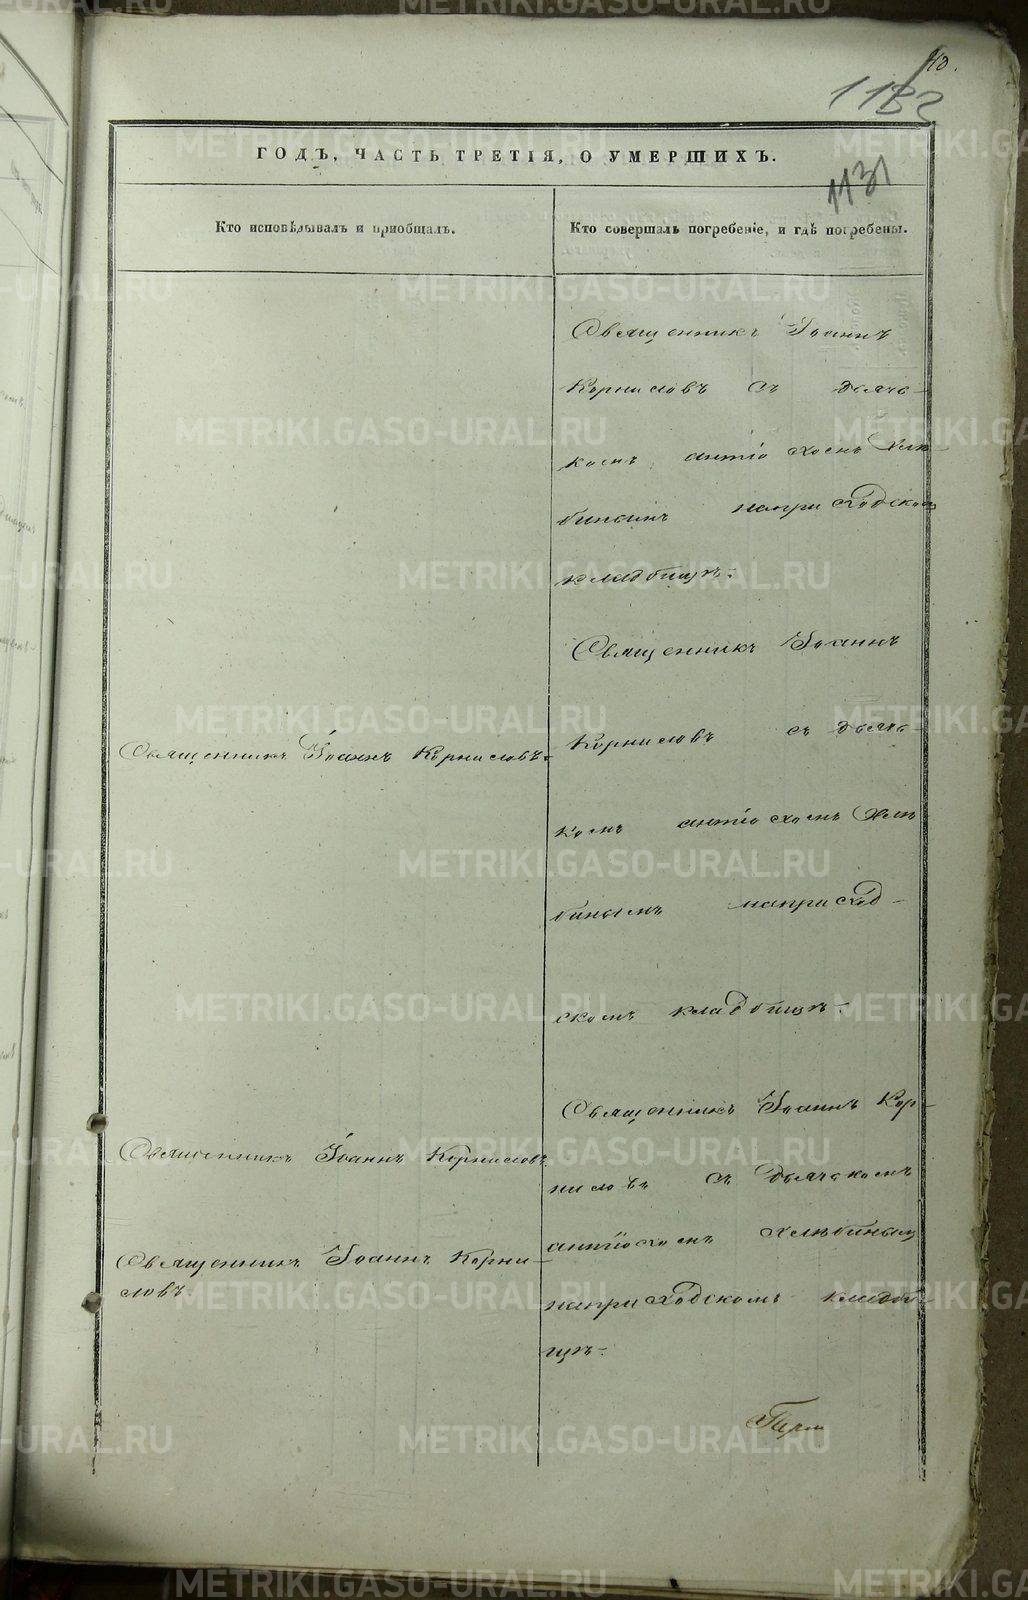 40.
1132
1131
ГОДЪ, ЧАСТЬ ТРЕТІЯ, О УМЕРШИХЪ.
Кто исповѣдывалъ и пріобщалъ.
Кто совершалъ погребеніе, и гдѣ погребены.
Священникъ Іоаннъ
Корниловъ съ дьяч-
комъ антіохомъ Хлѣ
бинымъ наприходскомъ
кладбищѣ.
Священникъ Іоаннъ
Священникъ Іоаннъ Корниловъ.
Корниловъ съ дьяч-
комъ антіохомъ Хлѣ
бинымъ наприход-
скомъ кладбищѣ.
Священникъ Іоаннъ Кор-
Священникъ Іоаннъ Корниловъ
ниловъ съ дьячкомъ
антіохомъ Хлѣбинымъ
Священникъ Іоаннъ Корни-
ловъ
наприходскомъ кладби
щѣ.
METRIKI.GASO-URAL.RU